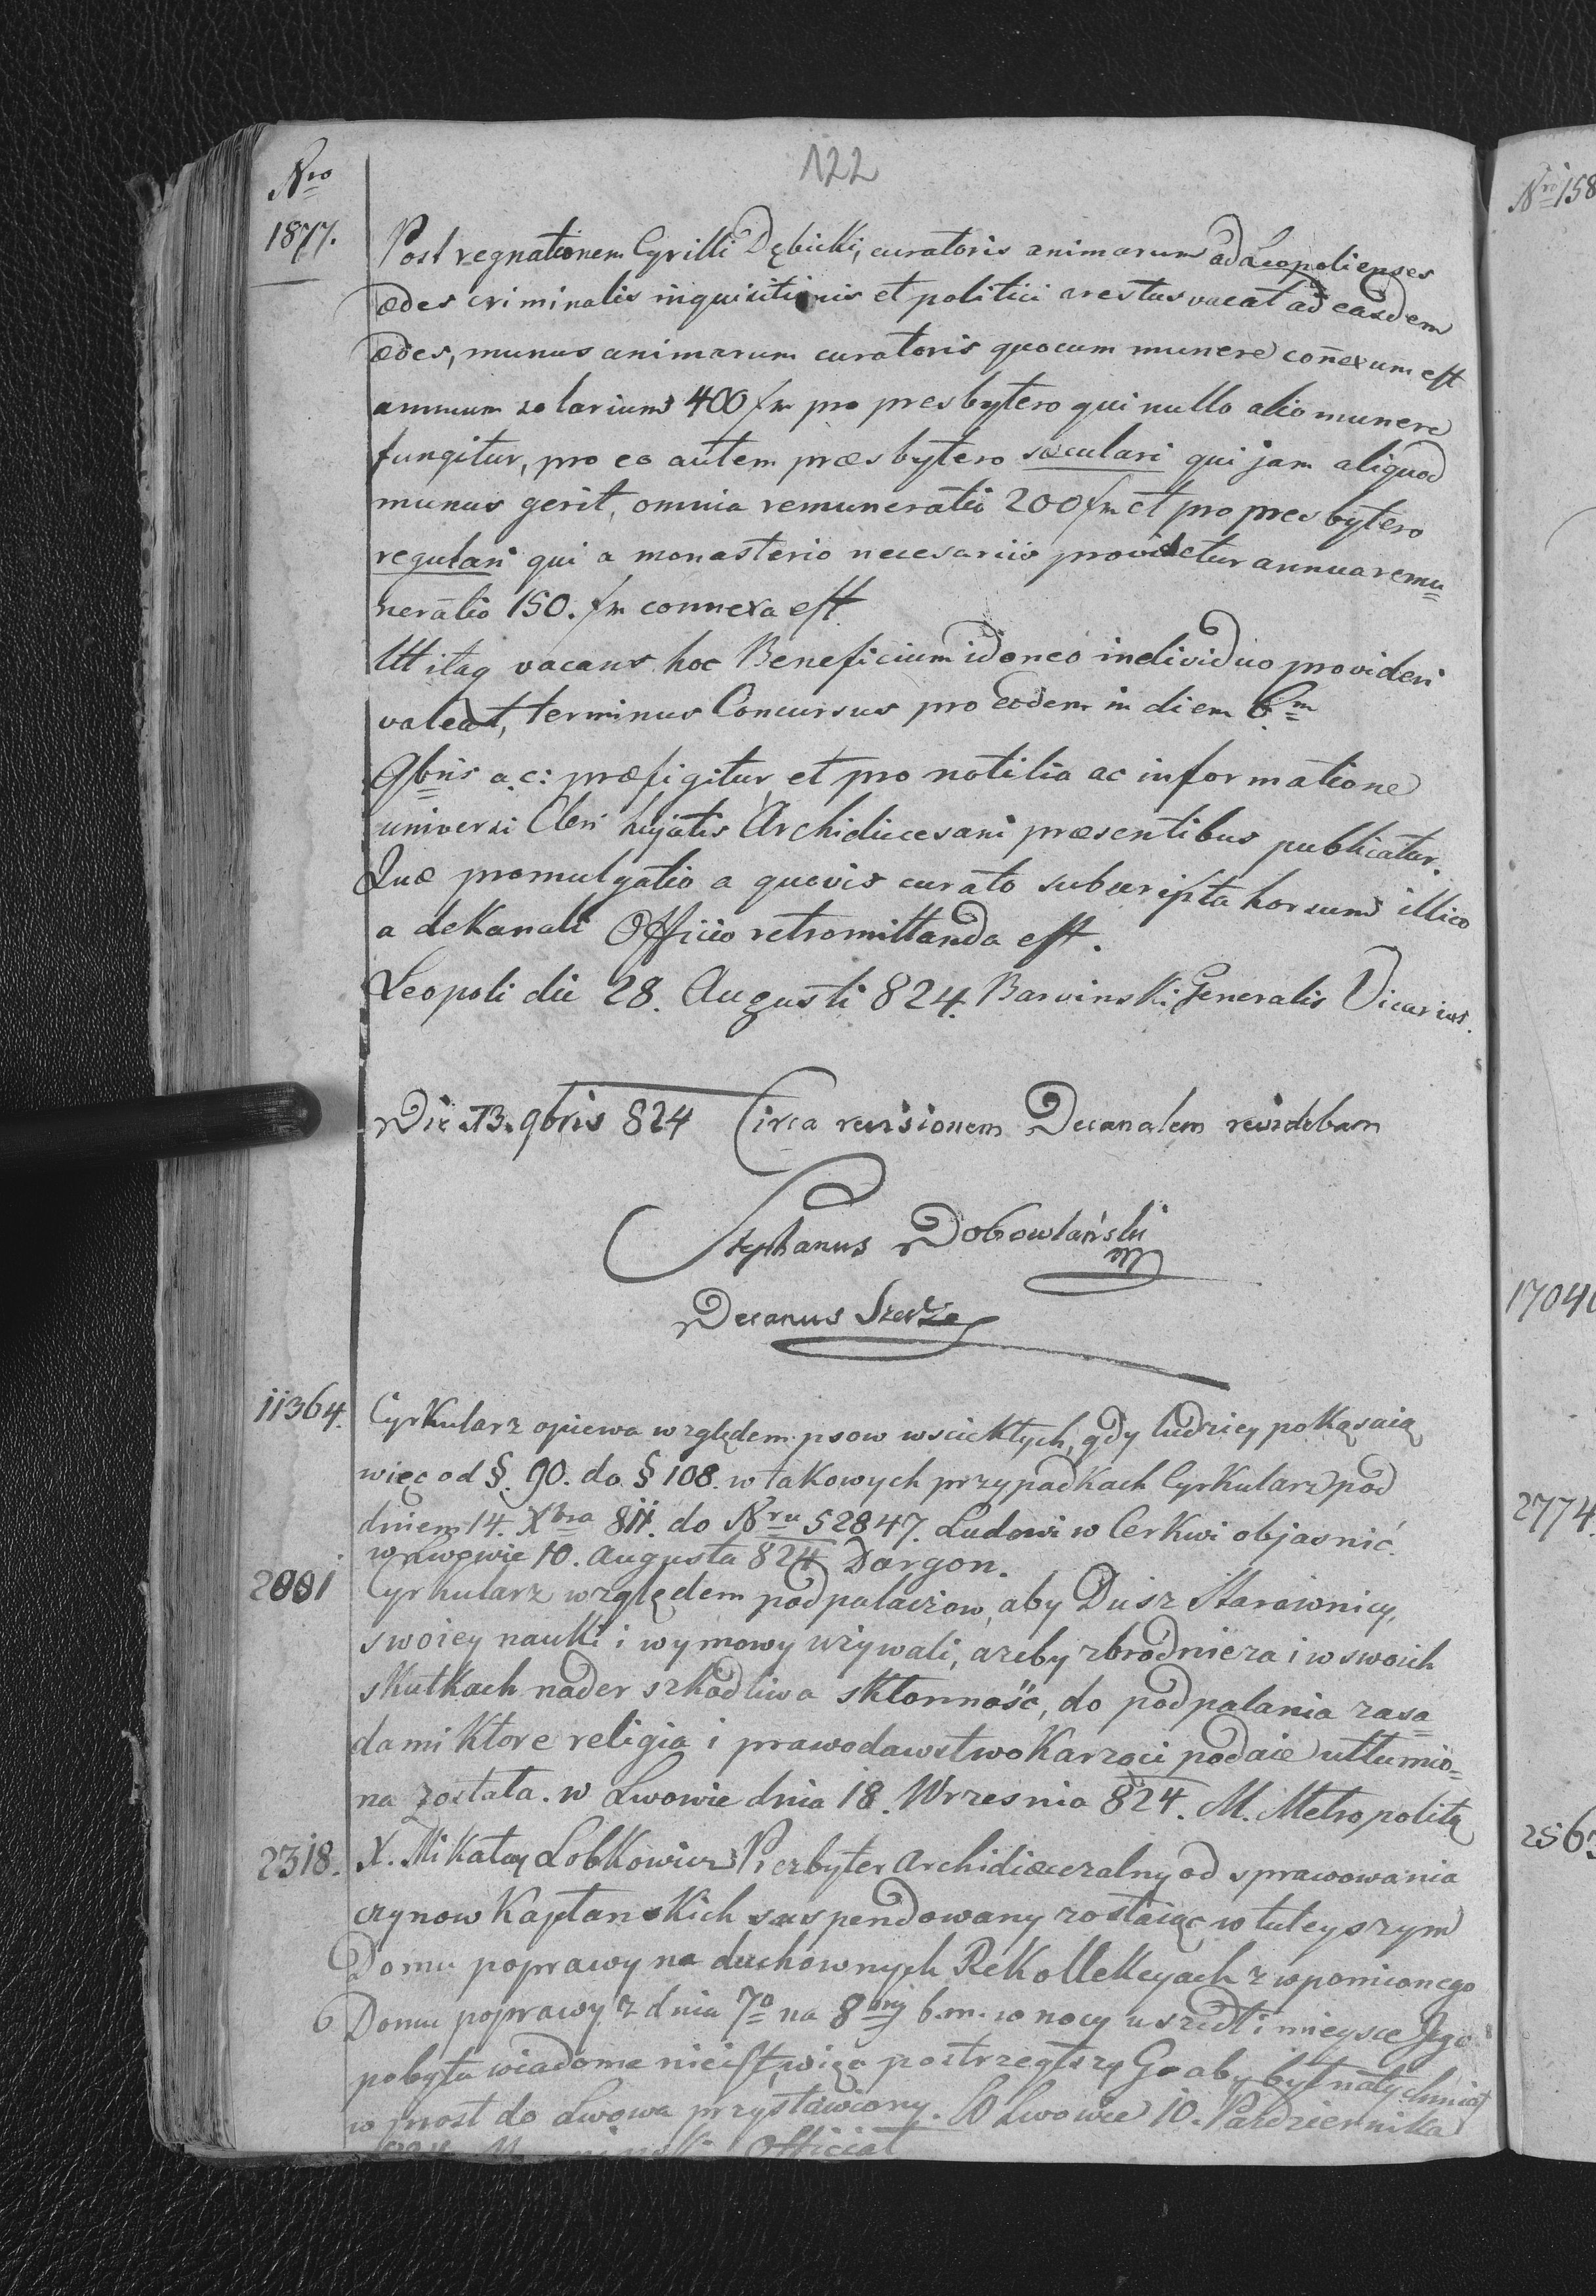 122
Nro
1877. Post regnationem Cyrilli Dębicki, curatoris animarum ad Leopolienses
ædes criminalis inquisitionis et politici arestus vacat ad easdem
ædes, munus animarum curatoris quocum munere coñexum est
annuum solarium 400 fm pro presbytero qui nullo alio munere
fungitur, pro eo autem præsbytero sæculari qui jam aliquod
munus gerit, omnia remuneratio 200 fm et pro presbytero
regulari qui a monasterio necesariis providetur annua remu=
neratio 150. fm connexa est
Ut itaq vacans hoc Beneficium idoneo individuo provideri
valeat, terminus Concursus pro eodem in diem 6m
9bris a.c: præfigitur et pro notitia ac informatione
universi Cleri hujatis Archidiecesani præsentibus publicatur.
Quæ promulgatio a quovis curato subscripta horsum illico
a deKanali Officio retromittanda est.
Leopoli die 28. Augusti 824. Barvinski Generalis Vicarius.
Die 13. 9bris 824 Circa revisionem Decanalem revidebam
Stephanus Dobowlański
Decanus
11364. CyrKularz opiewa względem psow wscieKłych, gdy ludziey poKąsaią
więc od §. 90. do § 108. w taKowych przypadKach CyrKularz pod
dniem 14. Xbra 811. do Nru 52847. Ludowi w CerKwi objasnić.
w Lwowie 10. Augusta 824 Dargon.
2001 Cyrkularz względem podpalaczow, aby Dusz Starownicy,
swoiey nauKi i wymowy używali, ażeby zbrodnicza i w swoich
sKutKach nader szKodliwa sKłonność, do podpalania zasa=
dami Ktore religia i prawodawstwo Karzący podaie utłumio=
na została. w Lwowie dnia 18. Wrzesnia 824. M. Metropolitą
2318. X. MiKałay LobKowicz Prezbyter Archidiæcezalny od sprawowania
czynow KapłansKich suspendowany zostaiąc w tuteyszym
Domu poprawy na duchownych ReKolleKcyach z wpomionego
Domu poprawy z dnia 7o na 8my b.m. w nocy uszedł i mieysce Jego
pobytu wiadome nieist, więc postrzegłszy Go aby był natychmiast
w prost do Lwowa przystawiony. W Lwowie 10. Pazdziernika
Officiał
Nro 158
1704
2774.
256